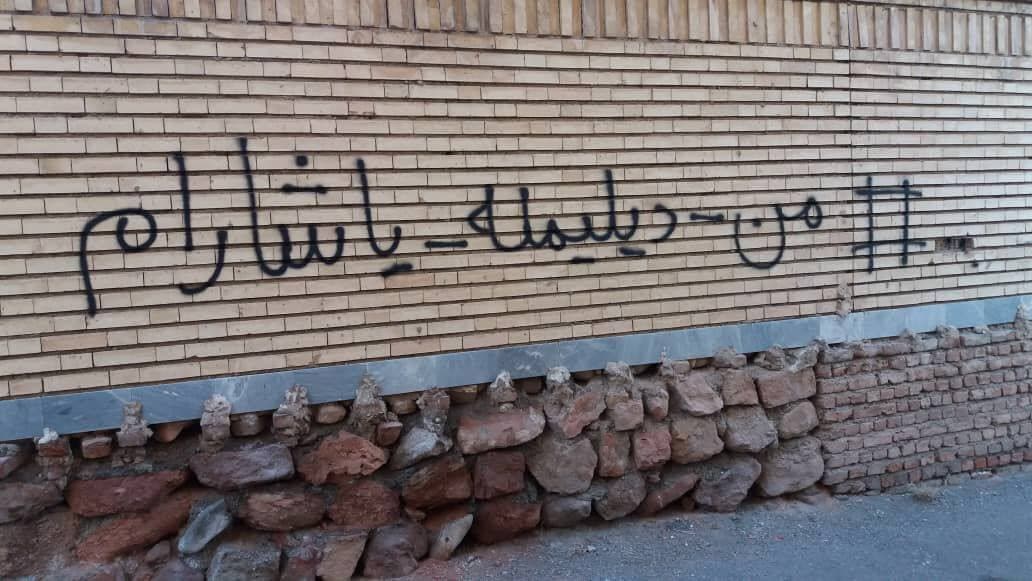 #من-دیلیمله-یاشارام